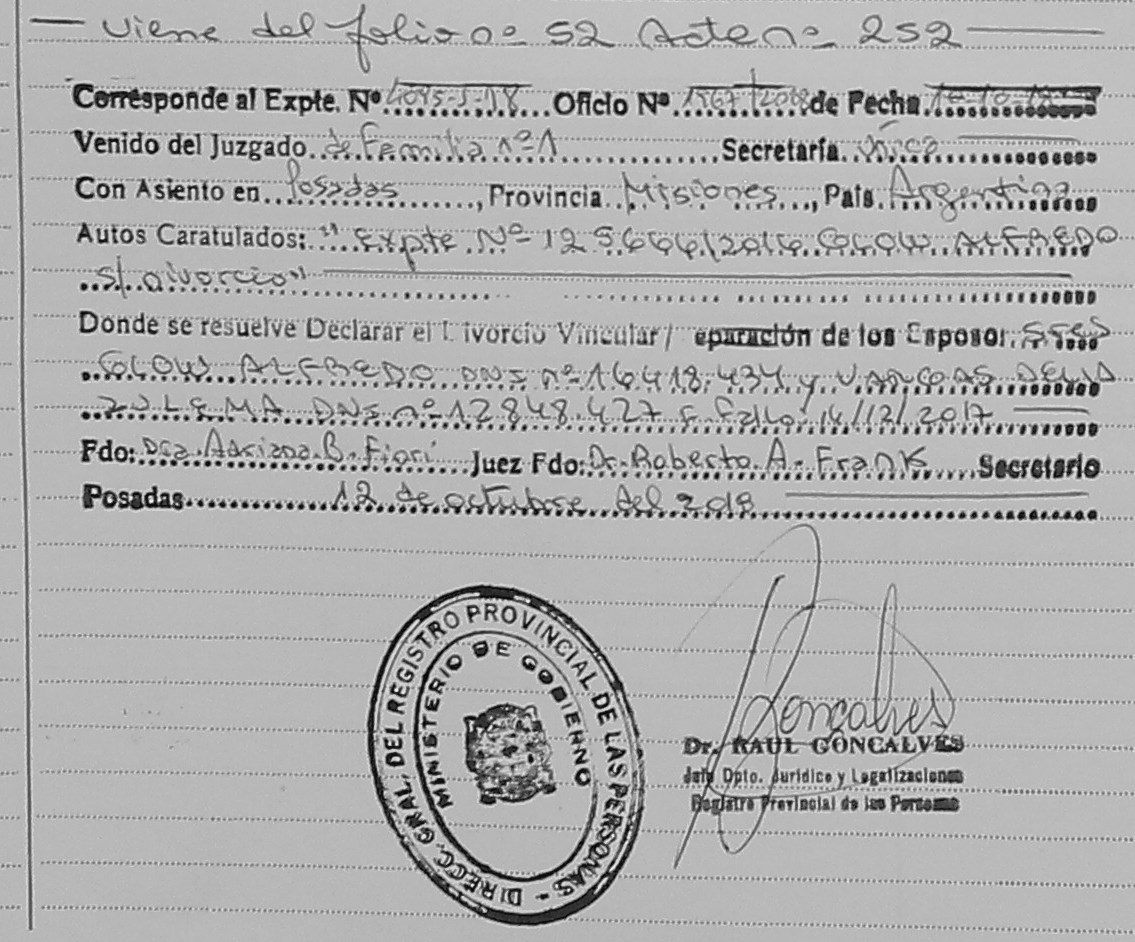 Viene del folio nº 52 Acta nº 252
Corresponde al Expte. Nº 4095-J-18 Oficio Nº 1567/2018 de Fecha
Venido del Juzgado de Familia nº 1 Secretaría Única
Con Asiento en Posadas, Provincia Misiones, País Argentina
Autos Caratulados: "Expte Nº 125666/2016 ALFREDO
s/ divorcio"
Donde se resuelve Declarar el Divorcio Vincular / eparación de los Esposos
ALFREDO DNI nº 16418.434 y VARGAS DELIA
ZULEMA DNI nº 12.848.427 F. Fallo: 14/12/2017
Fdo: Dra. Adriana B. Fiori Juez Fdo: Dr. Roberto A. Frank Secretario
Posadas 12 de octubre del 2018
DIRECC. GRAL. DEL REGISTRO PROVINCIAL DE LAS PERSONAS -
MINISTERIO DE GOBIERNO
Goncalves
Dr. RAUL GONCALVES
Jefe Dpto. Jurídico y Legalizaciones
Registro Provincial de las Personas